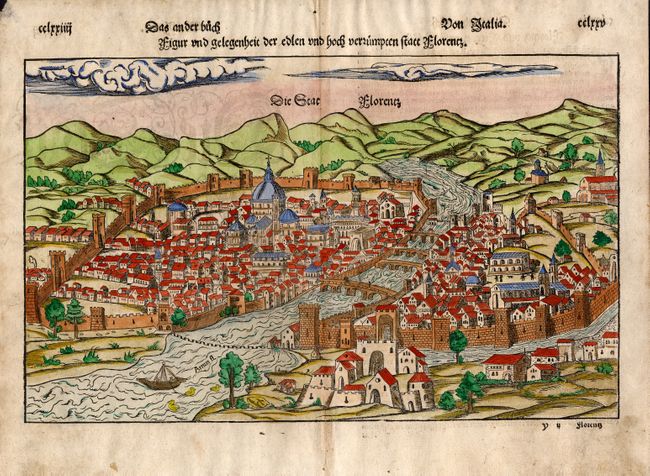 cclxxiiij Das ander bůch Von Italia. cclxxv
Figur vnd gelegenheit der edlen vnd hoch verrümpten statt Florentz.
Die Stat Florentz
Arnus fl.
y ij Florentz